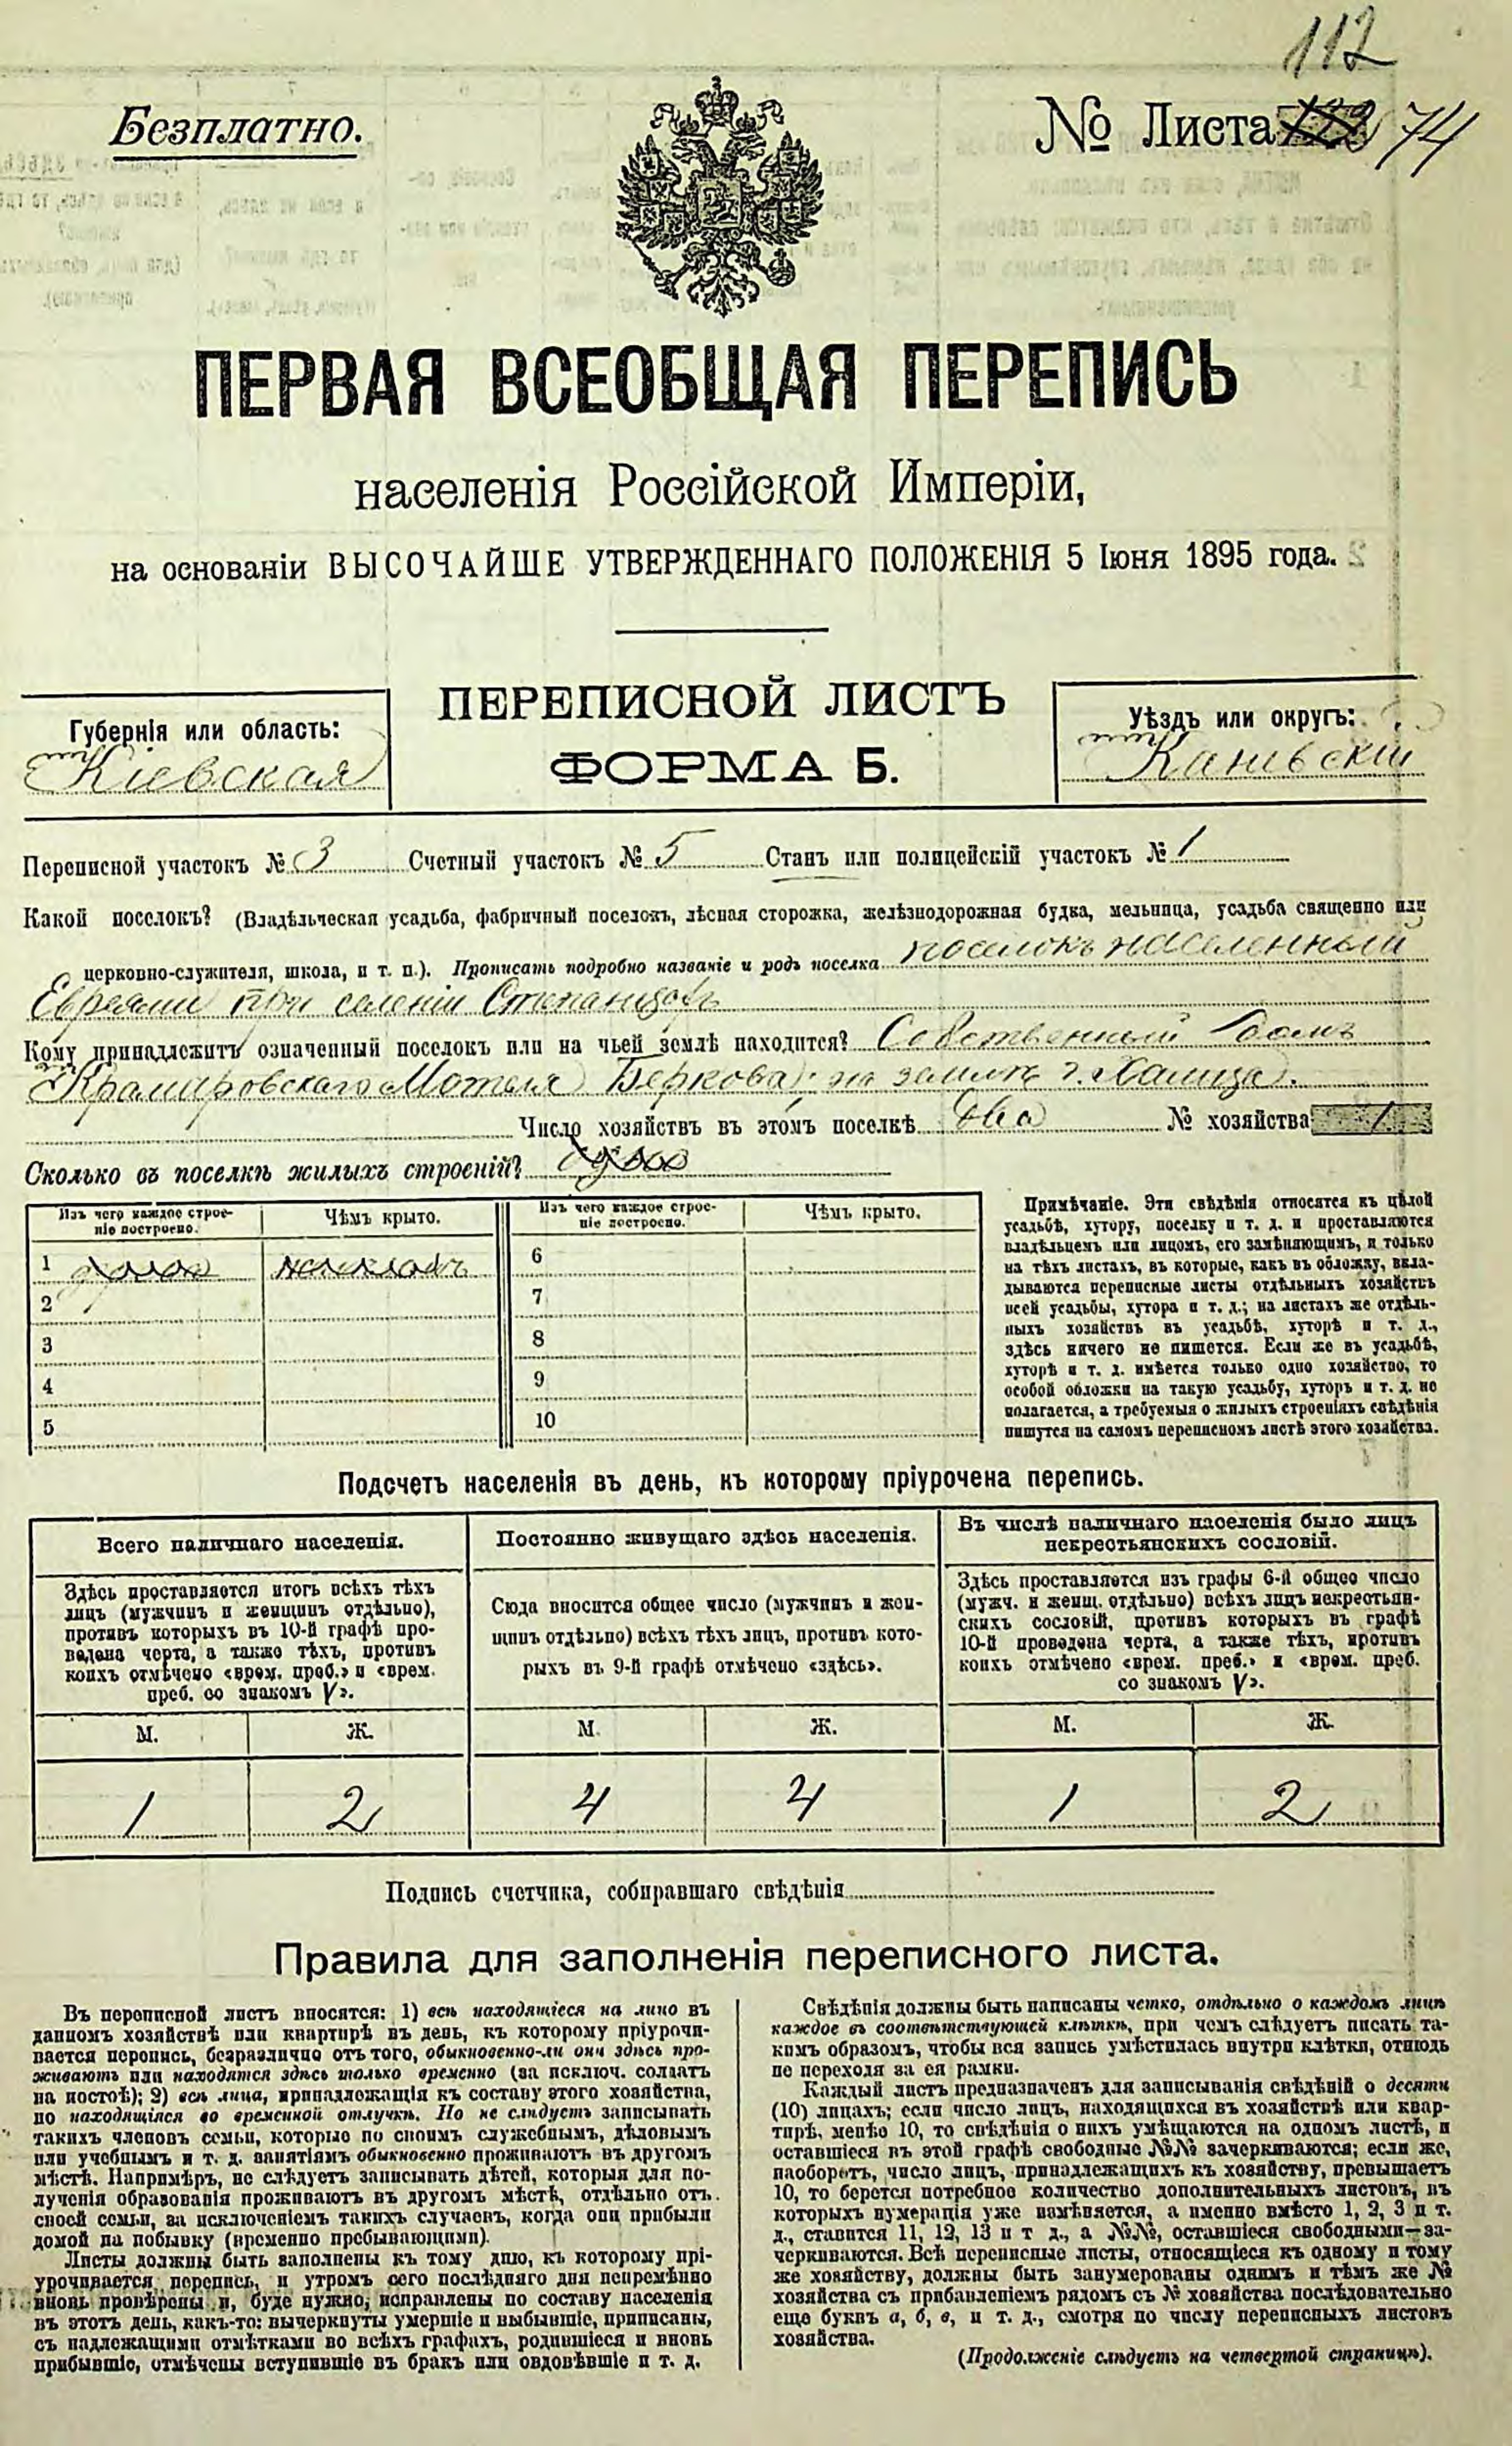 112
Безплатно.
№ Листа 74
ПЕРВАЯ ВСЕОБЩАЯ ПЕРЕПИСЬ
населенія Россійской Имперіи,
на основаніи ВЫСОЧАЙШЕ УТВЕРЖДЕННАГО ПОЛОЖЕНІЯ 5 Іюня 1895 года.
ПЕРЕПИСНОЙ ЛИСТЪ
ФОРМА Б.
Губернія или область:
Кіевская
Уѣздъ или округъ:
Каневскій
Переписной участокъ № 3 Счетный участокъ № 5 Станъ или полицейскій участокъ № 1
Какой поселокъ? (Владѣльческая усадьба, фабричный поселокъ, лѣсная сторожка, желѣзнодорожная будка, мельница, усадьба священно или
церковно-служителя, школа, и т. п.). Прописать подробно названіе и родъ поселка поселокъ населенный
Евреями при селеніи Степанцахъ
Кому принадлежитъ означенный поселокъ или на чьей землѣ находится? Собственный домъ
Крамаровскаго Мотеля Беркова на землѣ г.
Число хозяйствъ въ этомъ поселкѣ два № хозяйства 1
Сколько въ поселкѣ жилыхъ строеній? одно
Изъ чего каждое строе-
ніе построено.
Чѣмъ крыто.
Изъ чего каждое строе-
ніе построено.
Чѣмъ крыто.
1
6
2
7
3
8
4
9
5
10
Примѣчаніе. Эти свѣдѣнія относятся къ цѣлой
усадьбѣ, хутору, поселку и т. д. и проставляются
владѣльцемъ или лицомъ, его замѣняющимъ, и только
на тѣхъ листахъ, въ которые, какъ въ обложку, вкла-
дываются переписные листы отдѣльныхъ хозяйствъ
всей усадьбы, хутора и т. д.; на листахъ же отдѣль-
ныхъ хозяйствъ въ усадьбѣ, хуторѣ и т. д.,
здѣсь ничего не пишется. Если же въ усадьбѣ,
хуторѣ и т. д. имѣется только одно хозяйство, то
особой обложки на такую усадьбу, хуторъ и т. д. не
полагается, а требуемыя о жилыхъ строеніяхъ свѣдѣнія
пишутся на самомъ переписномъ листѣ этого хозяйства.
Подсчетъ населенія въ день, къ которому пріурочена перепись.
Всего наличнаго населенія.
Здѣсь проставляется итогъ всѣхъ тѣхъ
лицъ (мужчинъ и женщинъ отдѣльно),
противъ которыхъ въ 10-й графѣ про-
ведена черта, а также тѣхъ, противъ
коихъ отмѣчено «врем. преб.» и «врем.
преб. со знакомъ V».
Постоянно живущаго здѣсь населенія.
Сюда вносится общее число (мужчинъ и жен-
щинъ отдѣльно) всѣхъ тѣхъ лицъ, противъ кото-
рыхъ въ 9-й графѣ отмѣчено «здѣсь».
Въ числѣ наличнаго населенія было лицъ
некрестьянскихъ сословій.
Здѣсь проставляется изъ графы 6-й общее число
(мужч. и женщ. отдѣльно) всѣхъ лицъ некрестьян-
скихъ сословій, противъ которыхъ въ графѣ
10-й проведена черта, а также тѣхъ, противъ
коихъ отмѣчено «врем. преб.» и «врем. преб.
со знакомъ V».
М. Ж. М. Ж. М. Ж.
1 2 4 4 1 2
Подпись счетчика, собиравшаго свѣдѣнія
Правила для заполненія переписного листа.
Въ переписной листъ вносятся: 1) всѣ находящіеся на лицо въ
данномъ хозяйствѣ или квартирѣ въ день, къ которому пріурочи-
вается перепись, безразлично отъ того, обыкновенно-ли они здѣсь про-
живаютъ или находятся здѣсь только временно (за исключ. солдатъ
на постоѣ); 2) всѣ лица, принадлежащія къ составу этого хозяйства,
но находящіяся во временной отлучкѣ. Но не слѣдуетъ записывать
такихъ членовъ семьи, которые по своимъ служебнымъ, дѣловымъ
или учебнымъ и т. д. занятіямъ обыкновенно проживаютъ въ другомъ
мѣстѣ. Напримѣръ, не слѣдуетъ записывать дѣтей, которыя для по-
лученія образованія проживаютъ въ другомъ мѣстѣ, отдѣльно отъ
своей семьи, за исключеніемъ такихъ случаевъ, когда они прибыли
домой на побывку (временно пребывающими).
Листы должны быть заполнены къ тому дню, къ которому прі-
урочивается перепись, и утромъ сего послѣдняго дня непремѣнно
вновь провѣрены и, буде нужно, исправлены по составу населенія
въ этотъ день, какъ-то: вычеркнуты умершіе и выбывшіе, приписаны,
съ надлежащими отмѣтками во всѣхъ графахъ, родившіеся и вновь
прибывшіе, отмѣчены вступившіе въ бракъ или овдовѣвшіе и т. д.
Свѣдѣнія должны быть написаны четко, отдѣльно о каждомъ лицѣ
каждое въ соотвѣтствующей клѣткѣ, при чемъ слѣдуетъ писать та-
кимъ образомъ, чтобы вся запись умѣстилась внутри клѣтки, отнюдь
не переходя за ея рамки.
Каждый листъ предназначенъ для записыванія свѣдѣній о десяти
(10) лицахъ; если число лицъ, находящихся въ хозяйствѣ или квар-
тирѣ, менѣе 10, то свѣдѣнія о нихъ умѣщаются на одномъ листѣ, и
оставшіеся въ этой графѣ свободные №№ зачеркиваются; если же,
наоборотъ, число лицъ, принадлежащихъ къ хозяйству, превышаетъ
10, то берется потребное количество дополнительныхъ листовъ, въ
которыхъ нумерація уже измѣняется, а именно вмѣсто 1, 2, 3 и т.
д., ставится 11, 12, 13 и т д., а №№, оставшіеся свободными—за-
черкиваются. Всѣ переписные листы, относящіеся къ одному и тому
же хозяйству, должны быть занумерованы однимъ и тѣмъ же №
хозяйства съ прибавленіемъ рядомъ съ № хозяйства послѣдовательно
еще буквъ а, б, в, и т. д., смотря по числу переписныхъ листовъ
хозяйства.
(Продолженіе слѣдуетъ на четвертой страницѣ).